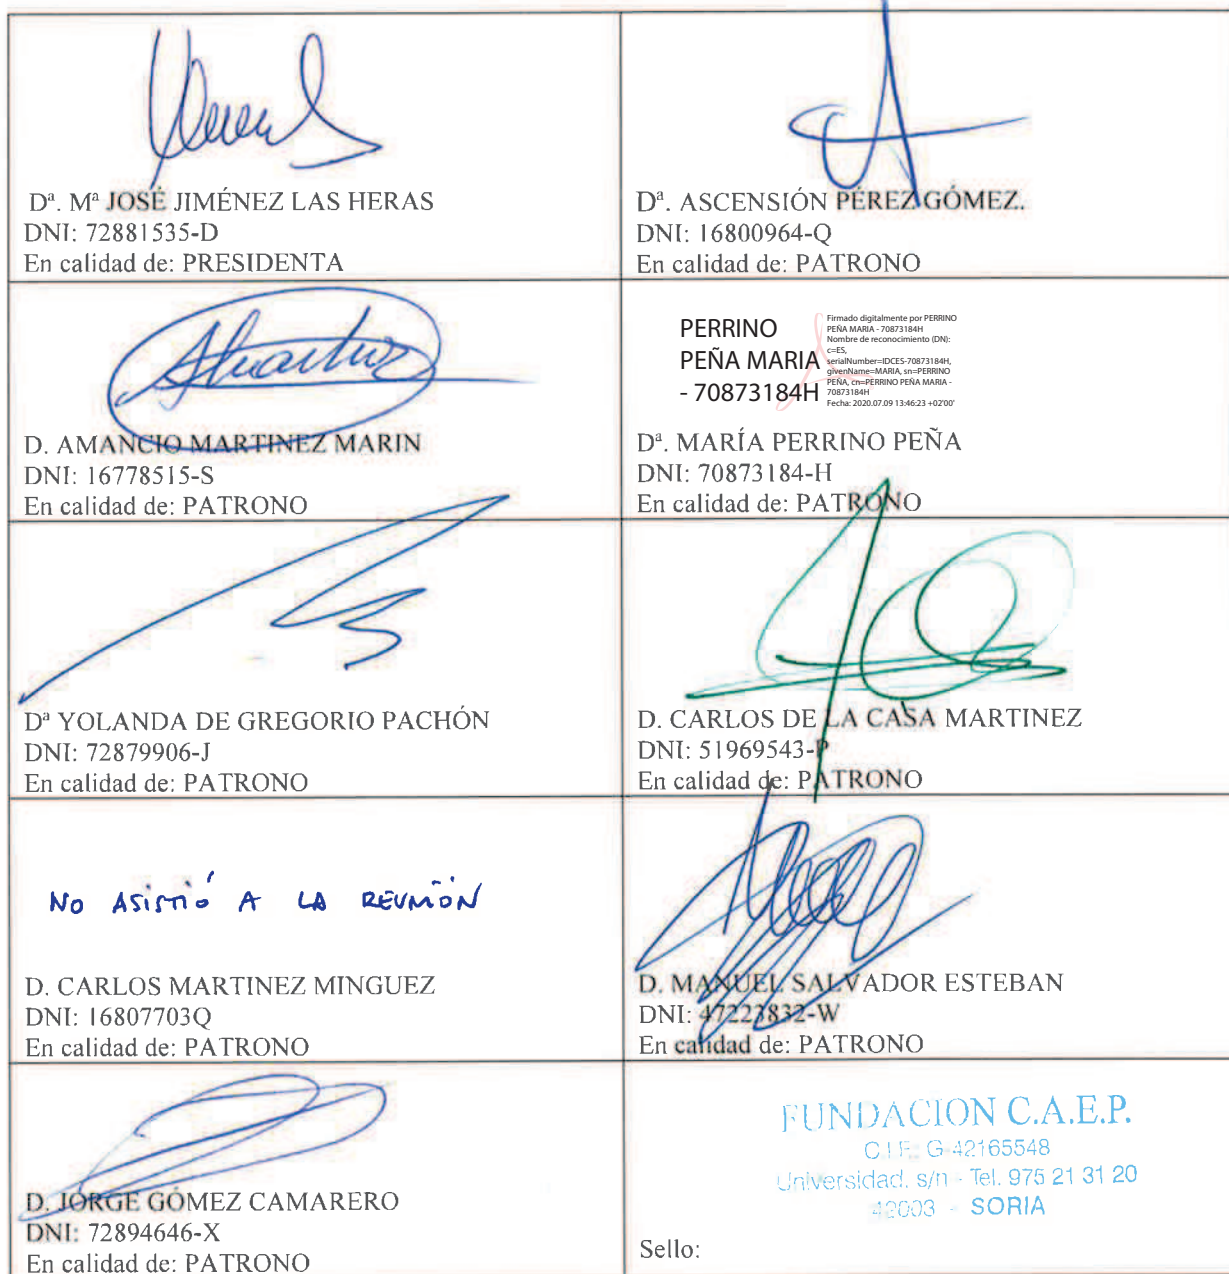 Dª. Mª JOSÉ JIMÉNEZ LAS HERAS
DNI: 72881535-D
En calidad de: PRESIDENTA
Dª. ASCENSIÓN PÉREZ GÓMEZ.
DNI: 16800964-Q
En calidad de: PATRONO
D. AMANCIO MARTINEZ MARIN
DNI: 16778515-S
En calidad de: PATRONO
PERRINO
PEÑA MARIA
- 70873184H
Firmado digitalmente por PERRINO
PEÑA MARIA - 70873184H
Nombre de reconocimiento (DN):
c=ES,
serialNumber=IDCES-70873184H,
givenName=MARIA, sn=PERRINO
PEÑA, cn=PERRINO PEÑA MARIA -
70873184H
Fecha: 2020.07.09 13:46:23 +02'00'
Dª. MARÍA PERRINO PEÑA
DNI: 70873184-H
En calidad de: PATRONO
Dª YOLANDA DE GREGORIO PACHÓN
DNI: 72879906-J
En calidad de: PATRONO
D. CARLOS DE LA CASA MARTINEZ
DNI: 51969543-P
En calidad de: PATRONO
NO ASISTIÓ A LA REUNIÓN
D. CARLOS MARTINEZ MINGUEZ
DNI: 16807703Q
En calidad de: PATRONO
D. MANUEL SALVADOR ESTEBAN
DNI: 47223832-W
En calidad de: PATRONO
D. JORGE GÓMEZ CAMARERO
DNI: 72894646-X
En calidad de: PATRONO
FUNDACION C.A.E.P.
C.I.F.: G-42165548
Universidad, s/n - Tel. 975 21 31 20
42003 - SORIA
Sello: